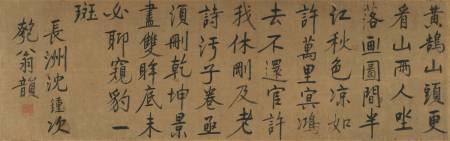 黄鵠山頭更
看山两人坐
落画圖間半
江秋色凉如
許萬里冥鴻
去不還官許
我休剛及老
詩污子卷亟
須刪乾坤景
盡雙眸底未
必聊窺豹一
斑
長洲沈鍾次
匏翁韻